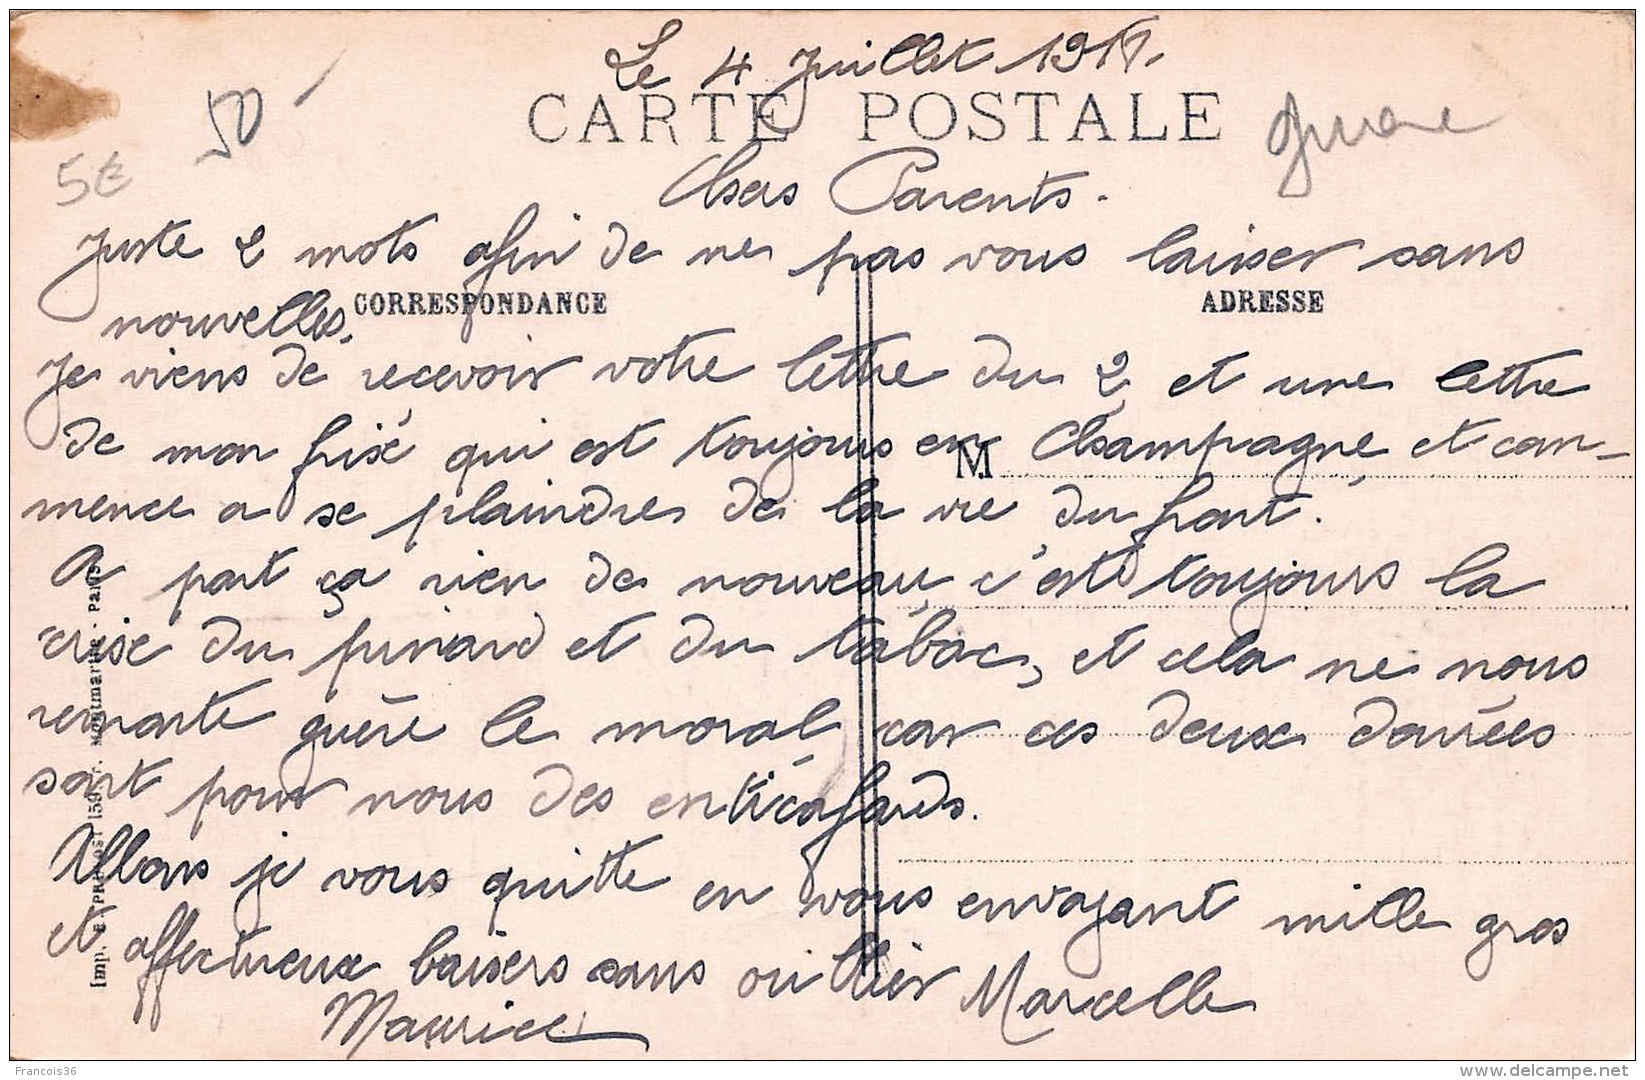 Le 4 Juillet 1917.
CARTE POSTALE
50
5€
Chers Parents.
Juste 2 mots afin de ne pas vous laisser sans
nouvelles.
CORRESPONDANCE
ADRESSE
Je viens de recevoir votre lettre du 2 et une lettre
de mon frisé qui est toujours en Champagne et com-
M
mence a se plaindre de la vie du front.
A part ça rien de nouveau, c'est toujours la
crise du pinard et du tabac, et cela ne nous
remonte guère le moral car ces deux denrées
sont pour nous des enticafards.
Allons je vous quitte en vous envoyant mille gros
et affectueux baisers sans oublier Marcelle
Maurice
Imp. E. PREVOST 159 Montmartre - Paris
Francois36
www.delcampe.net